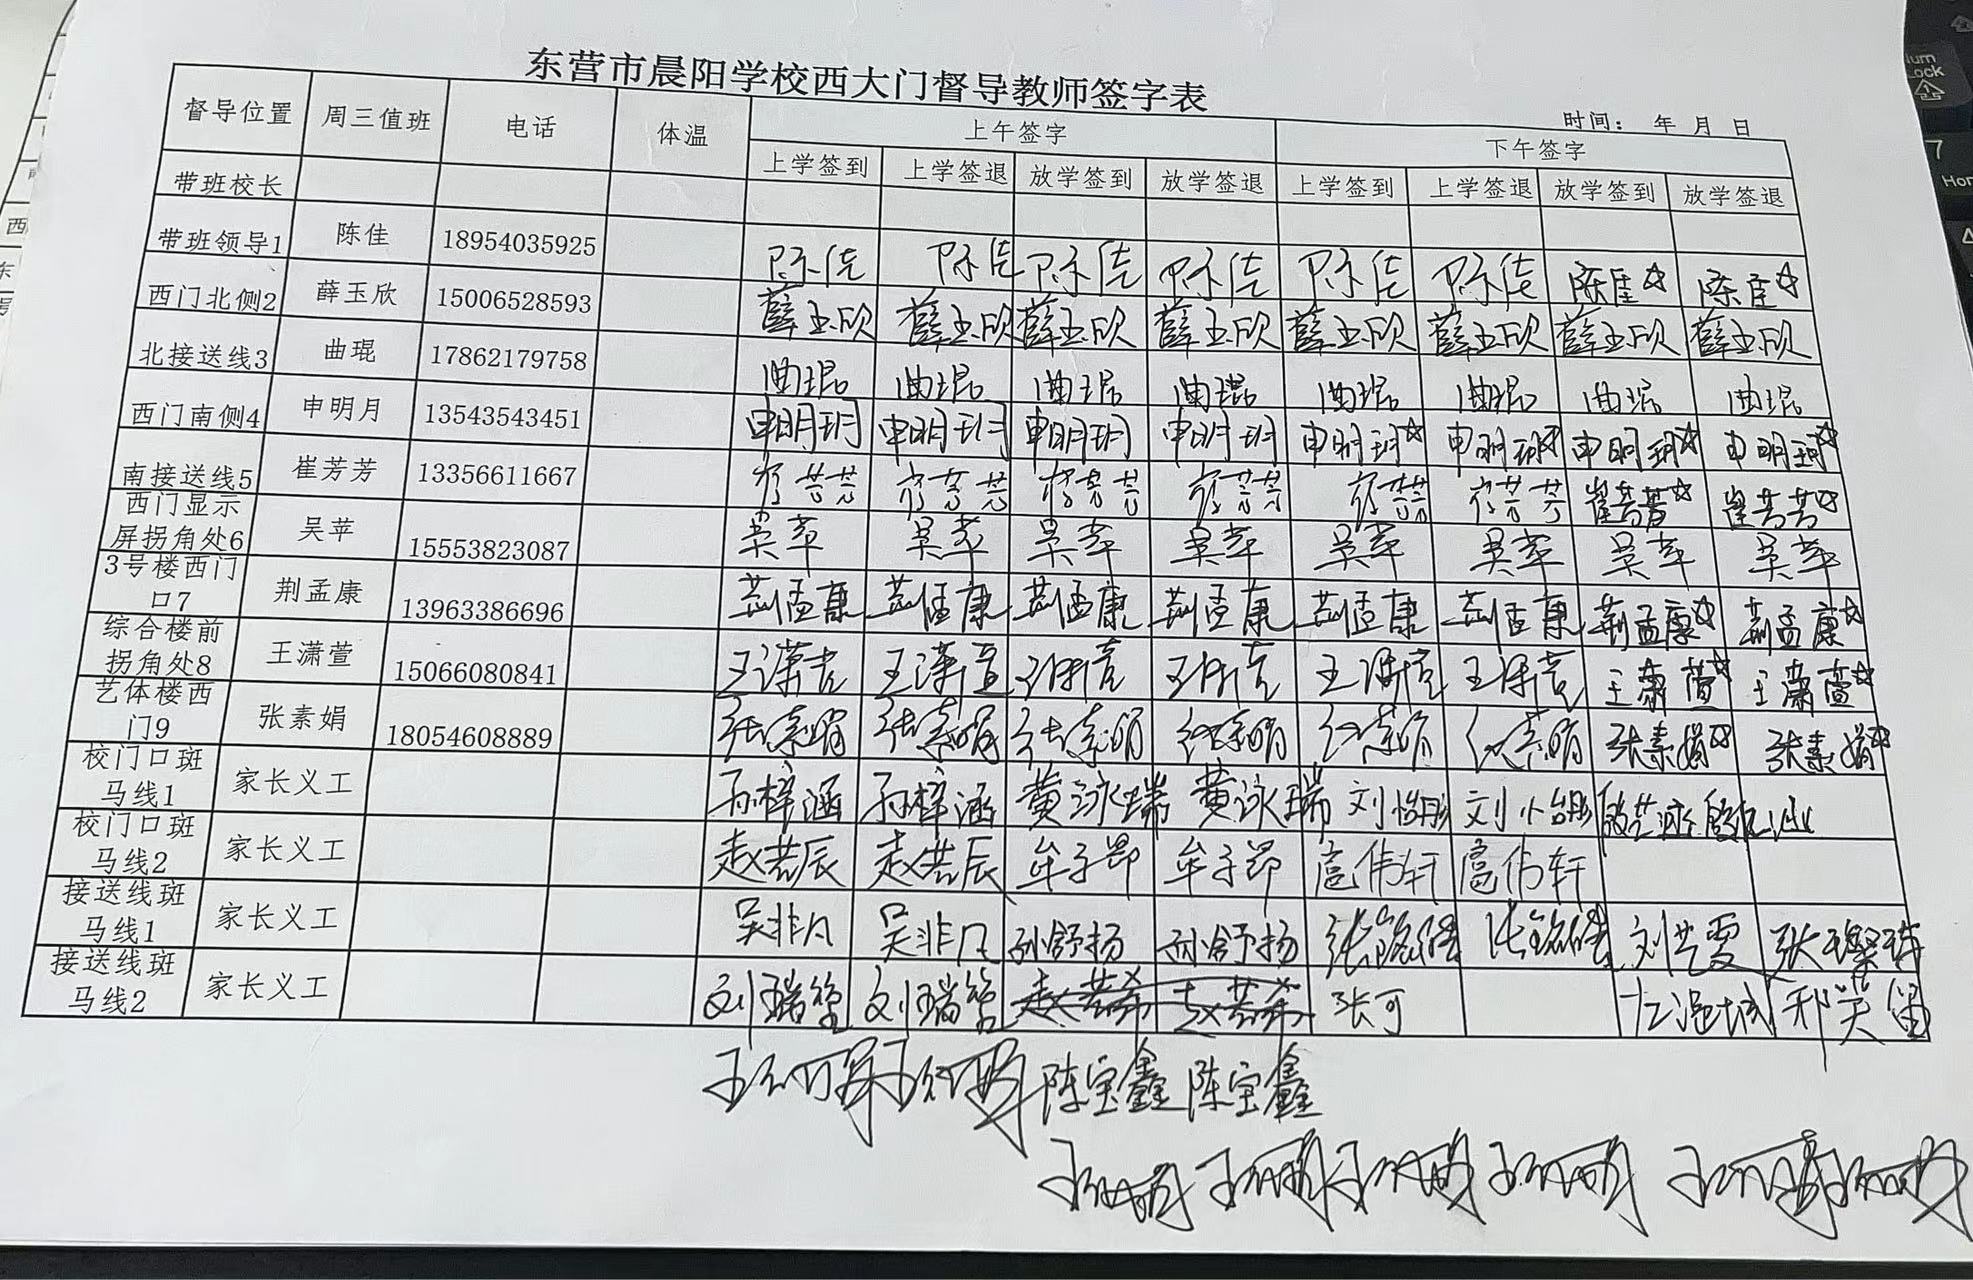 东营市晨阳学校西大门督导教师签字表
时间： 年 月 日
督导位置 周三值班 电话 体温 上午签字 下午签字
上学签到 上学签退 放学签到 放学签退 上学签到 上学签退 放学签到 放学签退
带班校长
带班领导1 陈佳 18954035925 陈佳 陈佳 陈佳 陈佳 陈佳 陈佳 陈佳☆ 陈佳☆
西门北侧2 薛玉欣 15006528593 薛玉欣 薛玉欣 薛玉欣 薛玉欣 薛玉欣 薛玉欣 薛玉欣 薛玉欣
北接送线3 曲琨 17862179758 曲琨 曲琨 曲琨 曲琨 曲琨 曲琨 曲琨 曲琨
西门南侧4 申明月 13543543451 申明玥 申明玥 申明玥 申明玥 申明玥☆ 申明玥☆ 申明玥☆ 申明玥☆
南接送线5 崔芳芳 13356611667 崔芳芳 崔芳芳 崔芳芳 崔芳芳 崔芳芳 崔芳芳 崔芳芳☆ 崔芳芳☆
西门显示屏拐角处6 吴苹 15553823087 吴苹 吴苹 吴苹 吴苹 吴苹 吴苹 吴苹 吴苹
3号楼西门口7 荆孟康 13963386696 荆孟康 荆孟康 荆孟康 荆孟康 荆孟康 荆孟康 荆孟康☆ 荆孟康☆
综合楼前拐角处8 王潇萱 15066080841 王潇萱 王潇萱 王潇萱 王潇萱 王潇萱 王潇萱 王潇萱☆ 王潇萱☆
艺体楼西门9 张素娟 18054608889 张素娟 张素娟 张素娟 张素娟 张素娟 张素娟 张素娟☆ 张素娟☆
校门口斑马线1 家长义工 孙梓涵 孙梓涵 黄泳瑞 黄泳瑞 刘怡彤 刘怡彤
校门口斑马线2 家长义工 赵若辰 赵若辰 牟子昂 牟子昂 扈伟轩 扈伟轩
接送线斑马线1 家长义工 吴非凡 吴非凡 孙舒扬 孙舒扬 张铭皓 张铭皓 刘艺雯 张璨琦
接送线斑马线2 家长义工 刘瑞莹 刘瑞莹 赵若希 赵若希 张可 邢笑笛
陈宝鑫 陈宝鑫